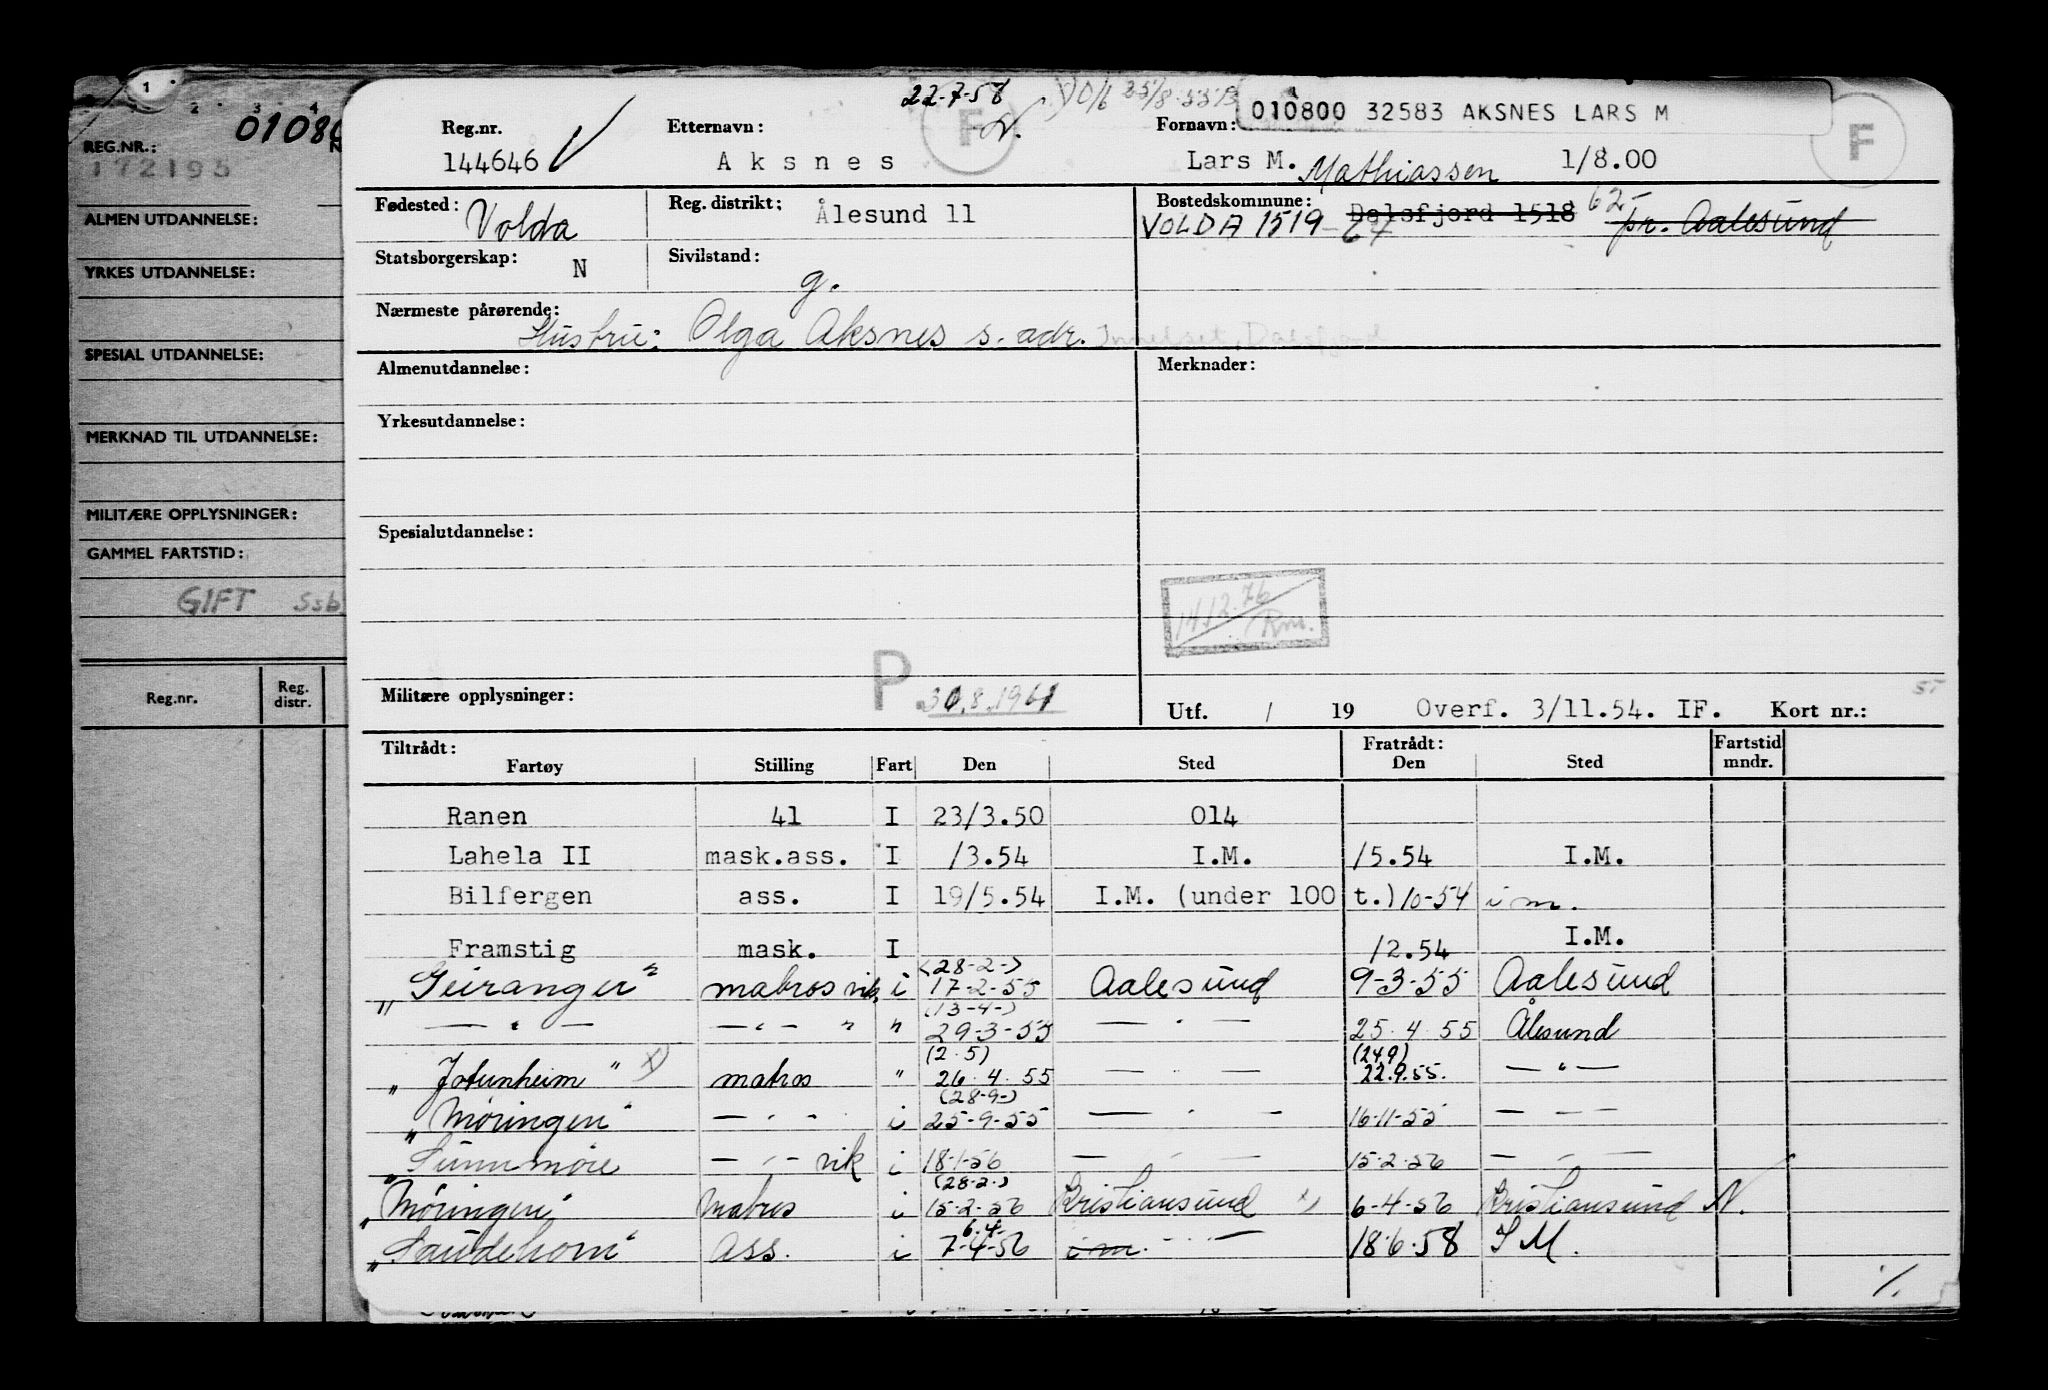 1 2 3 4
REG.NR.: 01080
172195
ALMEN UTDANNELSE:
YRKES UTDANNELSE:
SPESIAL UTDANNELSE:
MERKNAD TIL UTDANNELSE:
MILITÆRE OPPLYSNINGER:
GAMMEL FARTSTID:
GIFT Ssb
Reg.nr. Reg. distr.
22-7-58
010800 32583 AKSNES LARS M
Reg.nr. Etternavn: F Fornavn: F
144646 Aksnes Lars M. Mathiassen 1/8.00
Fødested: Volda Reg. distrikt: Ålesund 11 Bostedskommune: Dalsfjord 1518 62- pr. Aalesund
VOLDA 1519 - 64
Statsborgerskap: N Sivilstand: g.
Nærmeste pårørende:
Hustru: Olga Aksnes s. adr.
Almenutdannelse: Merknader:
Yrkesutdannelse:
Spesialutdannelse:
14/12.76 Rm.
Militære opplysninger: P 30.8.1961
Utf. / 19 Overf. 3/11.54. IF. Kort nr.:
Tiltrådt: Fratrådt:
Fartøy Stilling Fart Den Sted Den Sted Fartstid mndr.
Ranen 41 I 23/3.50 014
Lahela II mask.ass. I /3.54 I.M. /5.54 I.M.
Bilfergen ass. I 19/5.54 I.M. (under 100 t.) 10-54 i m.
Framstig mask. I /2.54 I.M.
(28-2-)
"Geiranger" matros vik. i 17-2-55 Aalesund 9-3-55 Aalesund
(13-4-)
— " — — " — " " 29-3-55 — " — 25.4 55 Ålesund
(2.5) (24.9)
"Jotunheim" x) matros " 26.4.55 — " — 22.9.55. — " —
(28-9-)
"Møringen" — " — i 25-9-55 — " — 16-11-55 — " —
"Sunnmøre — " — vik i 18-1-56 — " — 15-2-56 — " —
(28-2-)
"Møringen" Matros i 15-2-56 Kristiansund x) 6-4-56 Kristiansund N.
6.4-
"Saudehorn" Ass. i 7-4-56 i m. — " — 18.6.58 I M.
%